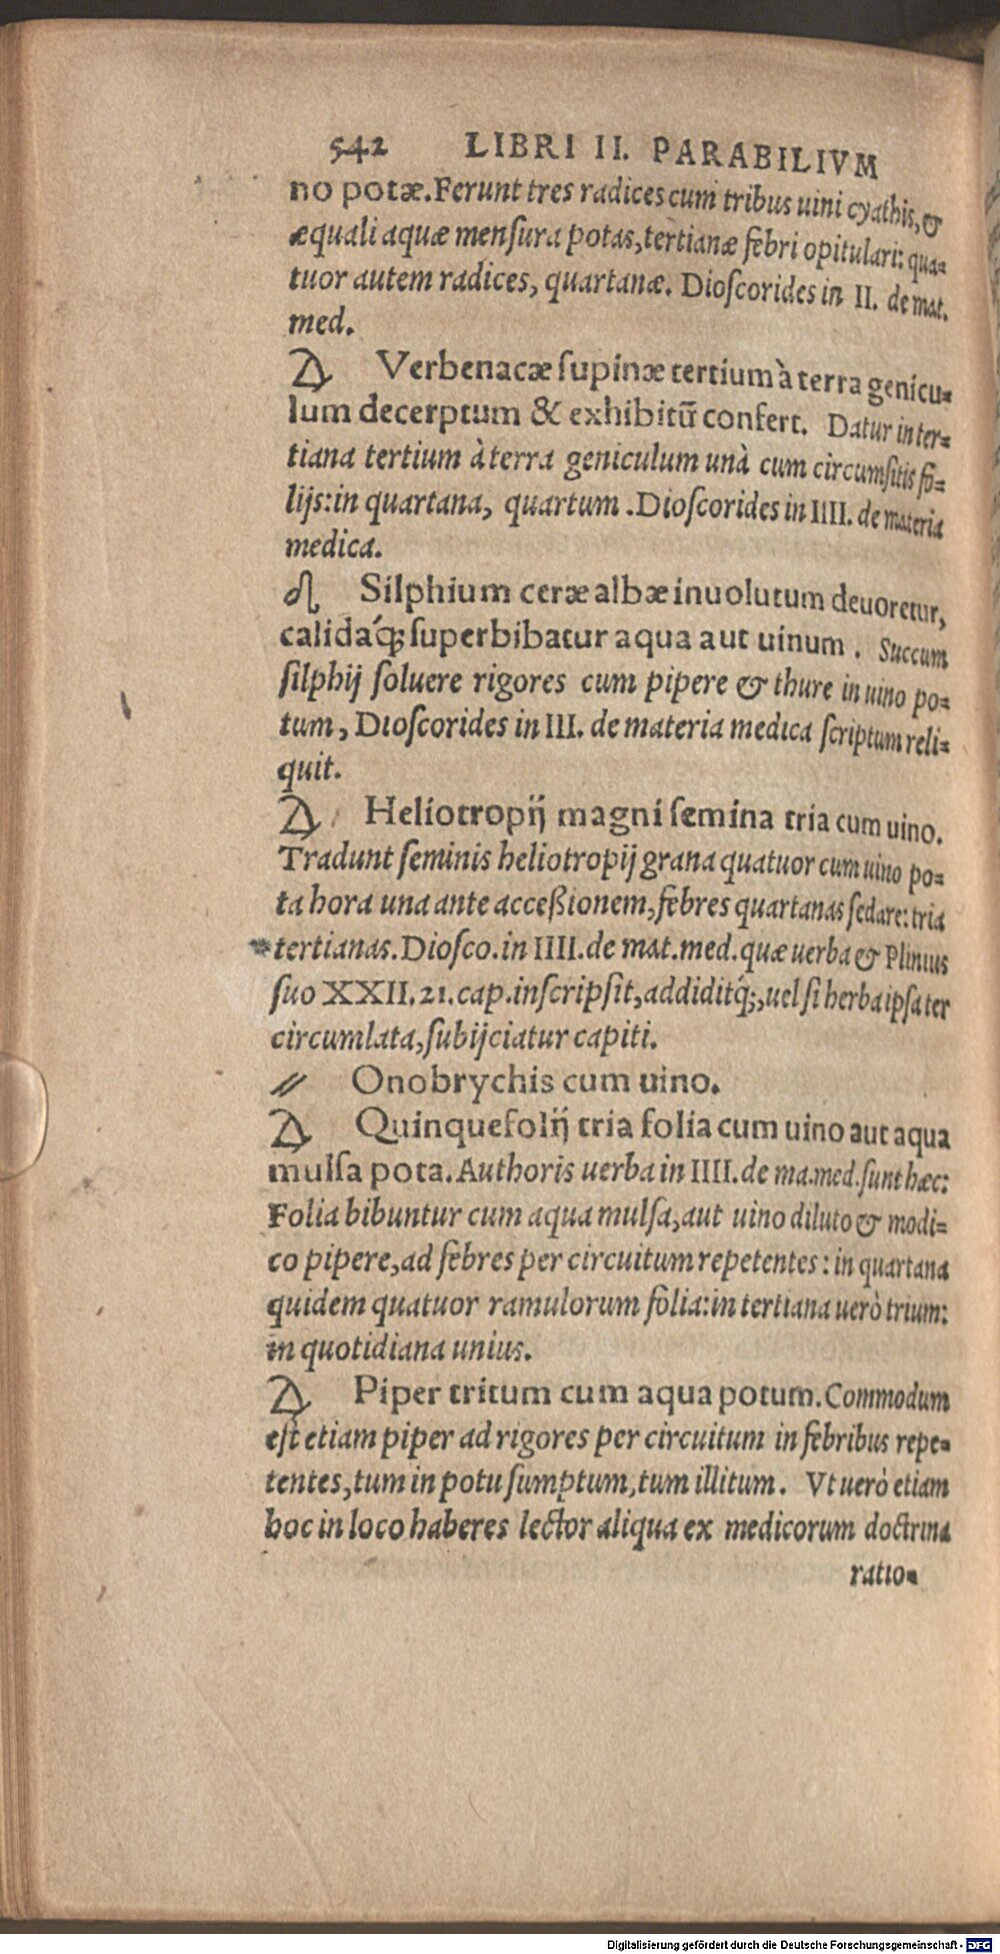 542 LIBRI II. PARABILIVM
no potæ. Ferunt tres radices cum tribus uini cyathis, &
æquali aquæ menſura potas, tertianæ febri opitulari: qua-
tuor autem radices, quartanæ. Dioſcorides in II. de mat.
med.
Verbenacæ ſupinæ tertium à terra genicu-
lum decerptum & exhibitũ confert. Datur in ter-
tiana tertium à terra geniculum unà cum circumſitis fo-
lijs: in quartana, quartum. Dioſcorides in IIII. de materia
medica.
Silphium ceræ albæ inuolutum deuoretur,
calidaq́; ſuperbibatur aqua aut uinum. Succum
ſilphij ſoluere rigores cum pipere & thure in uino po-
tum, Dioſcorides in III. de materia medica ſcriptum reli-
quit.
Heliotropij magni ſemina tria cum uino.
Tradunt ſeminis heliotropij grana quatuor cum uino po-
ta hora una ante acceßionem, febres quartanas ſedare: tria
tertianas. Dioſco. in IIII. de mat. med. quæ uerba & Plinius
ſuo XXII. 21. cap. inſcripſit, addiditq́;, uel ſi herba ipſa ter
circumlata, ſubijciatur capiti.
Onobrychis cum uino.
Quinquefolij tria folia cum uino aut aqua
mulſa pota. Authoris uerba in IIII. de ma. med. ſunt hæc:
Folia bibuntur cum aqua mulſa, aut uino diluto & modi-
co pipere, ad febres per circuitum repetentes: in quartana
quidem quatuor ramulorum folia: in tertiana uerò trium:
in quotidiana unius.
Piper tritum cum aqua potum. Commodum
eſt etiam piper ad rigores per circuitum in febribus repe-
tentes, tum in potu ſumptum, tum illitum. Vt uerò etiam
hoc in loco haberes lector aliqua ex medicorum doctrina
ratio-
Digitalisierung gefördert durch die Deutsche Forschungsgemeinschaft - DFG